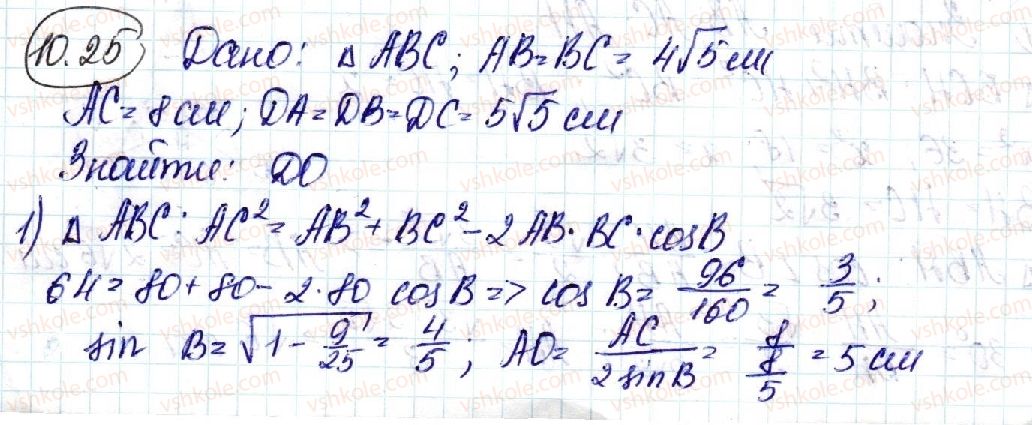 10.25 Дано: △ ABC; AB=BC= 4√5 см
AC= 8 см; DA=DB=DC= 5√5 см
Знайти: DO
1) △ ABC: AC²= AB²+ BC²-2 AB·BC·cosB
64= 80+80- 2·80 cos B => cos B= 96/160 = 3/5;
sin B= √(1- 9/25) = 4/5; AO= AC/(2 sin B) = 8/(8/5) = 5 см